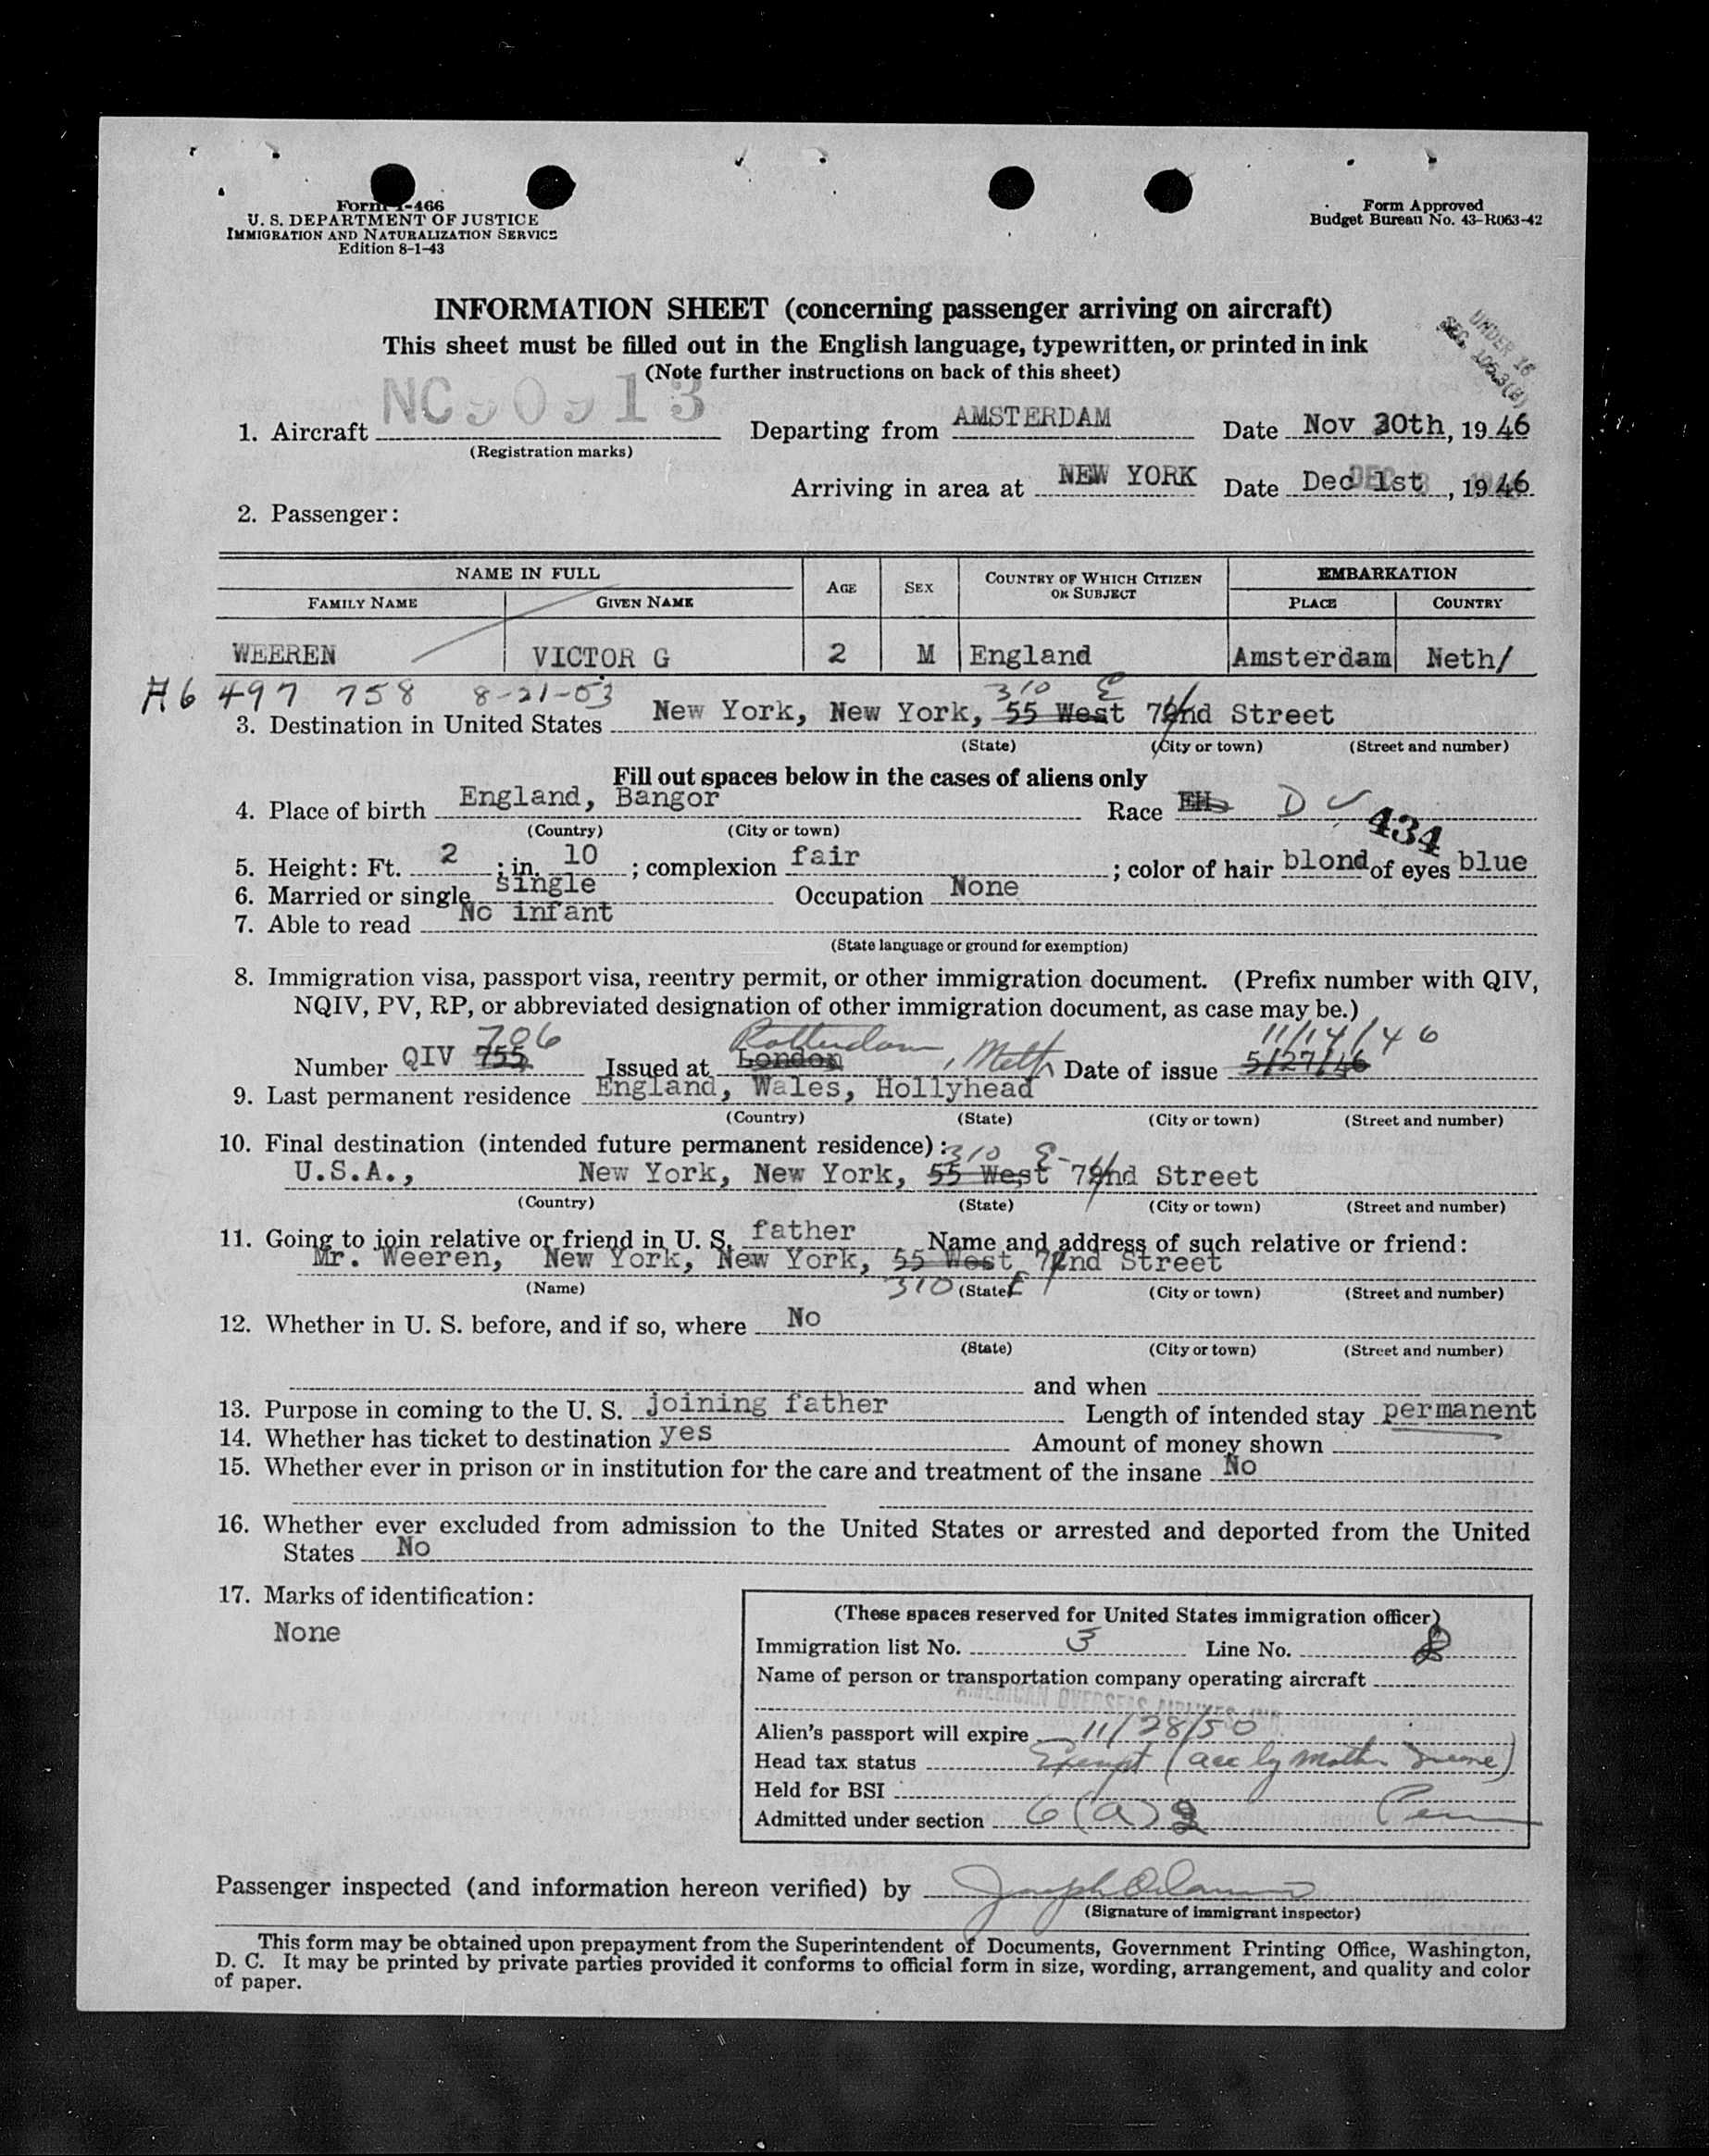 Form I-466
U. S. DEPARTMENT OF JUSTICE
IMMIGRATION AND NATURALIZATION SERVICE
Edition 8-1-43
Form Approved
Budget Bureau No. 43-R063-42
INFORMATION SHEET (concerning passenger arriving on aircraft)
This sheet must be filled out in the English language, typewritten, or printed in ink
(Note further instructions on back of this sheet)
UNDER 16
1. Aircraft NC90913 Departing from AMSTERDAM Date Nov 30th, 1946
(Registration marks)
Arriving in area at NEW YORK Date Dec 1st, 1946
2. Passenger:
NAME IN FULL AGE SEX COUNTRY OF WHICH CITIZEN OR SUBJECT EMBARKATION
FAMILY NAME GIVEN NAME PLACE COUNTRY
WEEREN VICTOR G 2 M England Amsterdam Neth/
A6 497 758 8-21-53
310 E
3. Destination in United States New York, New York, 55 West 72nd Street
(State) (City or town) (Street and number)
Fill out spaces below in the cases of aliens only
4. Place of birth England, Bangor Race EH D
(Country) (City or town)
434
5. Height: Ft. 2 ; in. 10 ; complexion fair ; color of hair blond of eyes blue
6. Married or single single Occupation None
7. Able to read No infant
(State language or ground for exemption)
8. Immigration visa, passport visa, reentry permit, or other immigration document. (Prefix number with QIV,
NQIV, PV, RP, or abbreviated designation of other immigration document, as case may be.)
706 Rotterdam, Neth 11/14/46
Number QIV 755 Issued at London Date of issue 5/27/46
9. Last permanent residence England, Wales, Hollyhead
(Country) (State) (City or town) (Street and number)
10. Final destination (intended future permanent residence):
310 E
U.S.A., New York, New York, 55 West 72nd Street
(Country) (State) (City or town) (Street and number)
11. Going to join relative or friend in U. S. father Name and address of such relative or friend:
Mr. Weeren, New York, New York, 55 West 72nd Street
310 E
(Name) (State) (City or town) (Street and number)
12. Whether in U. S. before, and if so, where No
(State) (City or town) (Street and number)
and when
13. Purpose in coming to the U. S. joining father Length of intended stay permanent
14. Whether has ticket to destination yes Amount of money shown
15. Whether ever in prison or in institution for the care and treatment of the insane No
16. Whether ever excluded from admission to the United States or arrested and deported from the United
States No
17. Marks of identification:
None
(These spaces reserved for United States immigration officer)
Immigration list No. 3 Line No.
Name of person or transportation company operating aircraft
AMERICAN OVERSEAS AIRLINES
Alien's passport will expire 11/28/50
Head tax status Exempt (acc by mother)
Held for BSI
Admitted under section 6(a)
Passenger inspected (and information hereon verified) by
(Signature of immigrant inspector)
This form may be obtained upon prepayment from the Superintendent of Documents, Government Printing Office, Washington,
D. C. It may be printed by private parties provided it conforms to official form in size, wording, arrangement, and quality and color
of paper.